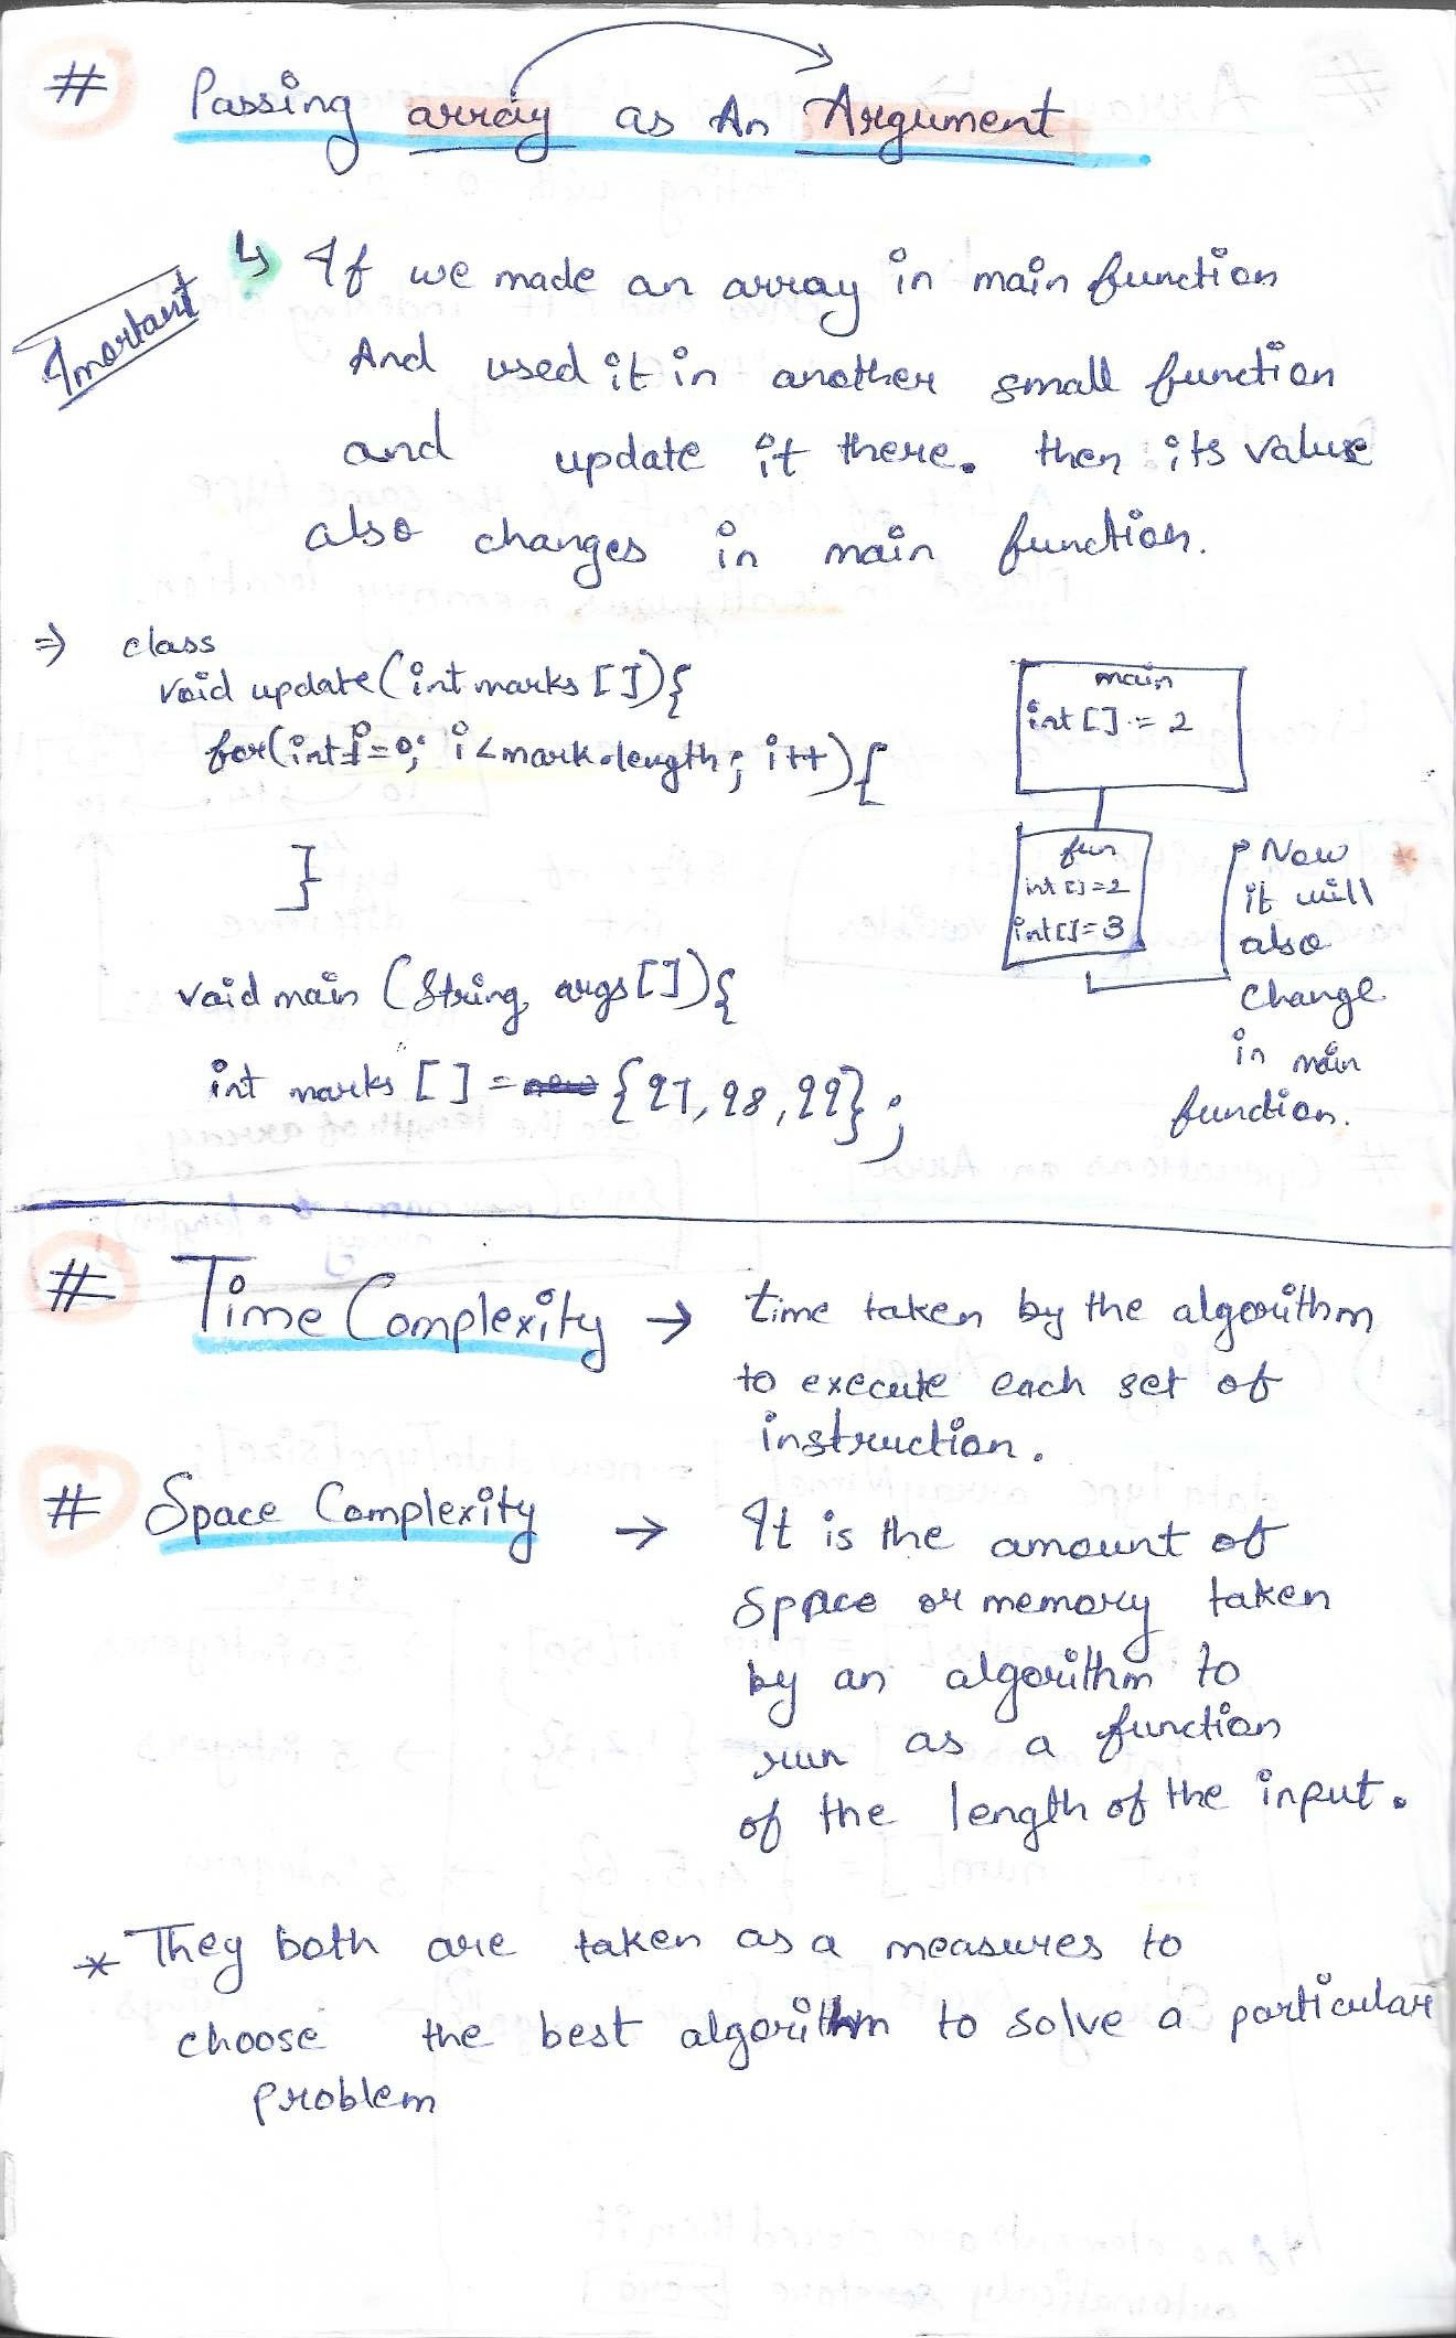 # Passing array as An Argument
Imortant
↳ If we made an array in main function
And used it in another small function
and update it there. then its value
also changes in main function.
⇒ class
void update(int marks []){
for(int i=0; i<mark.length; i++){
}
main
int [] = 2
fun
int []=2
int[]=3
Now
it will
also
change
in main
function.
void main (String args[]){
int marks [] = new {97, 98, 99};
# Time Complexity → time taken by the algorithm
to execute each set of
instruction.
# Space Complexity → It is the amount of
space or memory taken
by an algorithm to
run as a function
of the length of the input.
* They both are taken as a measures to
choose the best algorithm to solve a particular
problem